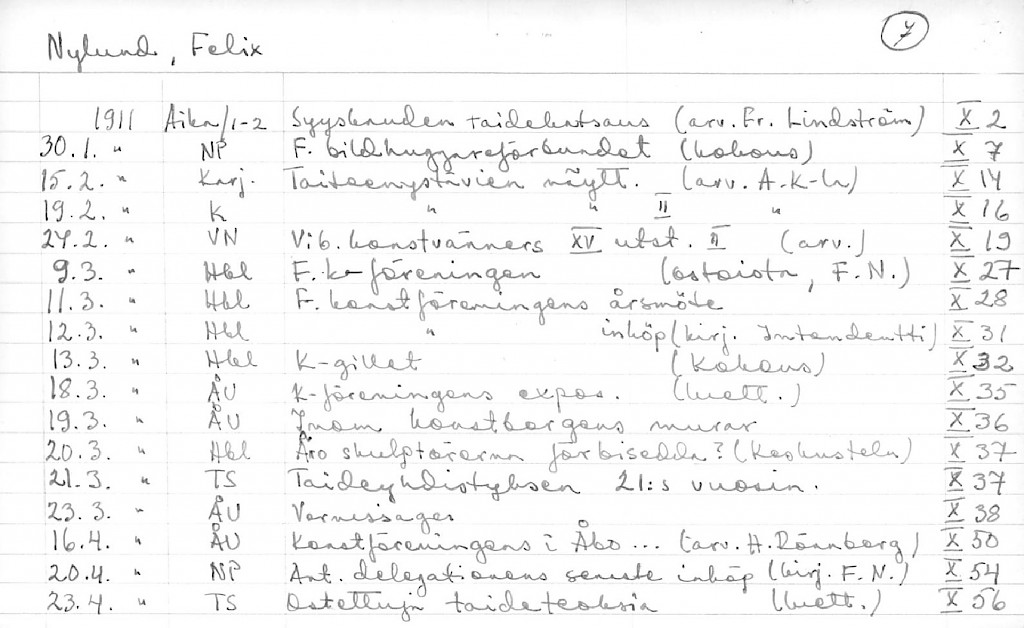 Nylund, Felix 7
1911 Aika/1-2 Syyskauden taidekatsaus (arv. Fr. Lindström) X 2
30.1. " NP F. bildhuggareförbundet (kokous) X 7
15.2. " Karj. Taiteenystävien näytt. (arv. A.K-la) X 14
19.2. " K " " II " X 16
24.2. " VN Vib. konstvänners XV utst. II (arv.) X 19
9.3. " Hbl F. k-föreningen (ostoista, F.N.) X 27
11.3. " Hbl F. konstföreningens årsmöte X 28
12.3. " Hbl " inköp (kirj. Intendentti) X 31
13.3. " Hbl K-gillet (Kokous) X 32
18.3. " ÅU K-föreningens expos. (luett.) X 35
19.3. " ÅU Inom konstborgens murar X 36
20.3. " Hbl Äro skulptörerna förbisedda? (Keskustelu) X 37
21.3. " TS Taideyhdistyksen 21:s vuosin. X 37
23.3. " ÅU Vernissages X 38
16.4. " ÅU Konstföreningens i Åbo ... (arv. H. Rönnberg) X 50
20.4. " NP Ant. delegationens senaste inköp (kirj. F.N.) X 54
23.4. " TS Ostettuja taideteoksia (luett.) X 56